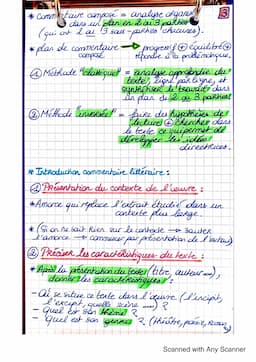 * commentaire composé = analyse organisée
dans un plan en 2 ou 3 parties
(qui ont 2 ou 3 sous-parties chacunes).
3
* plan de commentaire → progressif ⊕ équilibré ⊕
composé répondre à la problématique.
① Méthode "classique" = analyse approfondie du
texte, ligne par ligne, et
synthétiser le travail dans
un plan de 2 ou 3 parties
② Méthode "inversée" = faire des hypothèses de
lecture ⊕ chercher dans
le texte ce qui permet de
développer les idées
directrices.
* Introduction commentaire littéraire :
① Présentation du contexte de l'œuvre :
* Amorce qui replace l'extrait étudié dans un
contexte plus large.
* (Si on ne sait rien sur le contexte → sauter
l'amorce → commencer par présentation de l'extrait)
② Préciser les caractéristiques du texte :
* Après la présentation du texte (titre, auteur ...),
donner les caractéristiques :
- Où se situe ce texte dans l'œuvre (l'incipit,
l'excipit, quelle scène ...) ?
- Quel est son thème ?
- Quel est son genre ? (théâtre, poésie,
Scanned with Any Scanner